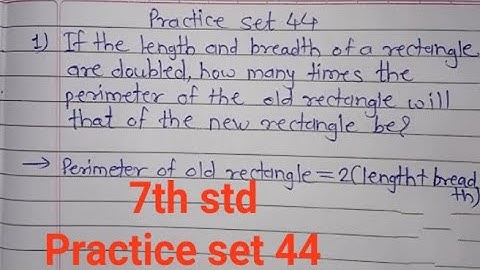 Practice set 44
1) If the length and breadth of a rectangle
are doubled, how many times the
perimeter of the old rectangle will
that of the new rectangle be?
→ Perimeter of old rectangle = 2(length + bread
th)
7th std
Practice set 44